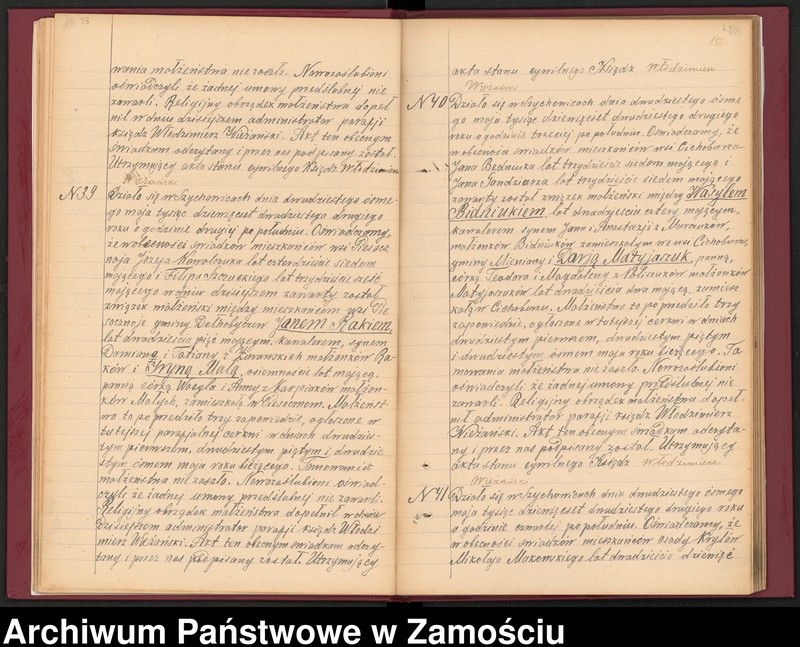 wania małżeństwa nie zaszło. Nowozaślubieni
oświadczyli że żadnej umowy przedślubnej nie
zawarli. Religijny obrządek małżeństwa dopeł
nił w dniu dzisiejszem administrator parafji
ksiądz Włodzimierz Wieżański. Akt ten obecnym
świadkom odczytany i przez nas podpisany został.
Utrzymujący akta stanu cywilnego Ksiądz Włodzimierz
Wieżański
N39 Działo się w Szychowicach dnia dwudziestego ósme-
go maja tysiąc dziewięćset dwudziestego drugiego
roku o godzinie drugiej po południu. Oświadczamy,
że w obecności świadków mieszkańców wsi
Józefa Kowalczuka lat czterdzieści siedem
mającego i Filipa lat trzydzieści sześć
mającego w dniu dzisiejszem zawarty został
związek małżeński między mieszkańcem wsi
gminy Dołhobyczew Janem Rakiem,
lat dwadzieścia pięć mającym, kawalerem, synem
Damiana i Tatiany z małżonków Ra-
ków i Iryną Małą, osiemnaście lat mającą,
panną córką Wasyla i Anny z Karpiaków małżon-
ków Małych, zamieszkałą w. Małżeńst-
wo to poprzedziło trzy zapowiedzie, ogłoszone w
tutejszej parafjalnej cerkwi w dniach dwudzies-
tym pierwszem, dwudziestym piątym i dwudzie
stym ósmem maja roku bieżącego. Tamowanie
małżeństwa nie zaszło. Nowozaślubieni oświad-
czyli że żadnej umowy przedślubnej nie zawarli.
Religijny obrządek małżeństwa dopełnił w dniu
dzisiejszem administrator parafji ksiądz Włodzi
mierz Wieżański. Akt ten obecnym świadkom odczy-
tany i przez nas podpisany został. Utrzymujący
15.
akta stanu cywilnego Ksiądz Włodzimierz
Wieżański
N40 Działo się w Szychowicach dnia dwudziestego ósme
go maja tysiąc dziewięćset dwudziestego drugiego
roku o godzinie trzeciej po południu. Oświadczamy, że
w obecności świadków mieszkańców wsi Cichoburza
Jana Bedniuka lat trzydzieści siedem mającego i
Jana lat trzydzieści siedem mającego
zawarty został związek małżeński między Wasylem
Bidniukiem, lat dwadzieścia cztery mającym,
kawalerem synem Jana i Anastazji z
małżonków Bidniuków zamieszkałym we wsi Cichoburzu,
gminy Mieniany i Darją Matyjaszuk, panną,
córką Teodora i Magdaleny z małżonków
Matyjaszuków lat dwadzieścia dwa mającą, zamiesz
kałą w Cichoburzu. Małżeństwo to poprzedziło trzy
zapowiedzie, ogłoszone w tutejszej cerkwi w dniach
dwudziestym pierwszem, dwudziestym piątym
i dwudziestym ósmem maja roku bieżącego. Ta
mowania małżeństwa nie zaszło. Nowozaślubieni
oświadczyli że żadnej umowy przedślubnej nie
zawarli. Religijny obrządek małżeństwa dopeł-
nił administrator parafji ksiądz Włodzimierz
Wieżański. Akt ten obecnym świadkom odczyta-
ny i przez nas podpisany został. Utrzymujący
akta stanu cywilnego Ksiądz Włodzimierz
Wieżański
N41 Działo się w Szychowicach dnia dwudziestego ósmego
maja tysiąc dziewięćset dwudziestego drugiego roku
o godzinie czwartej po południu. Oświadczamy, że
w obecności świadków mieszkańców osady Kryłów
Mikołaja Makowskiego lat dwadzieścia dziewięć
Archiwum Państwowe w Zamościu